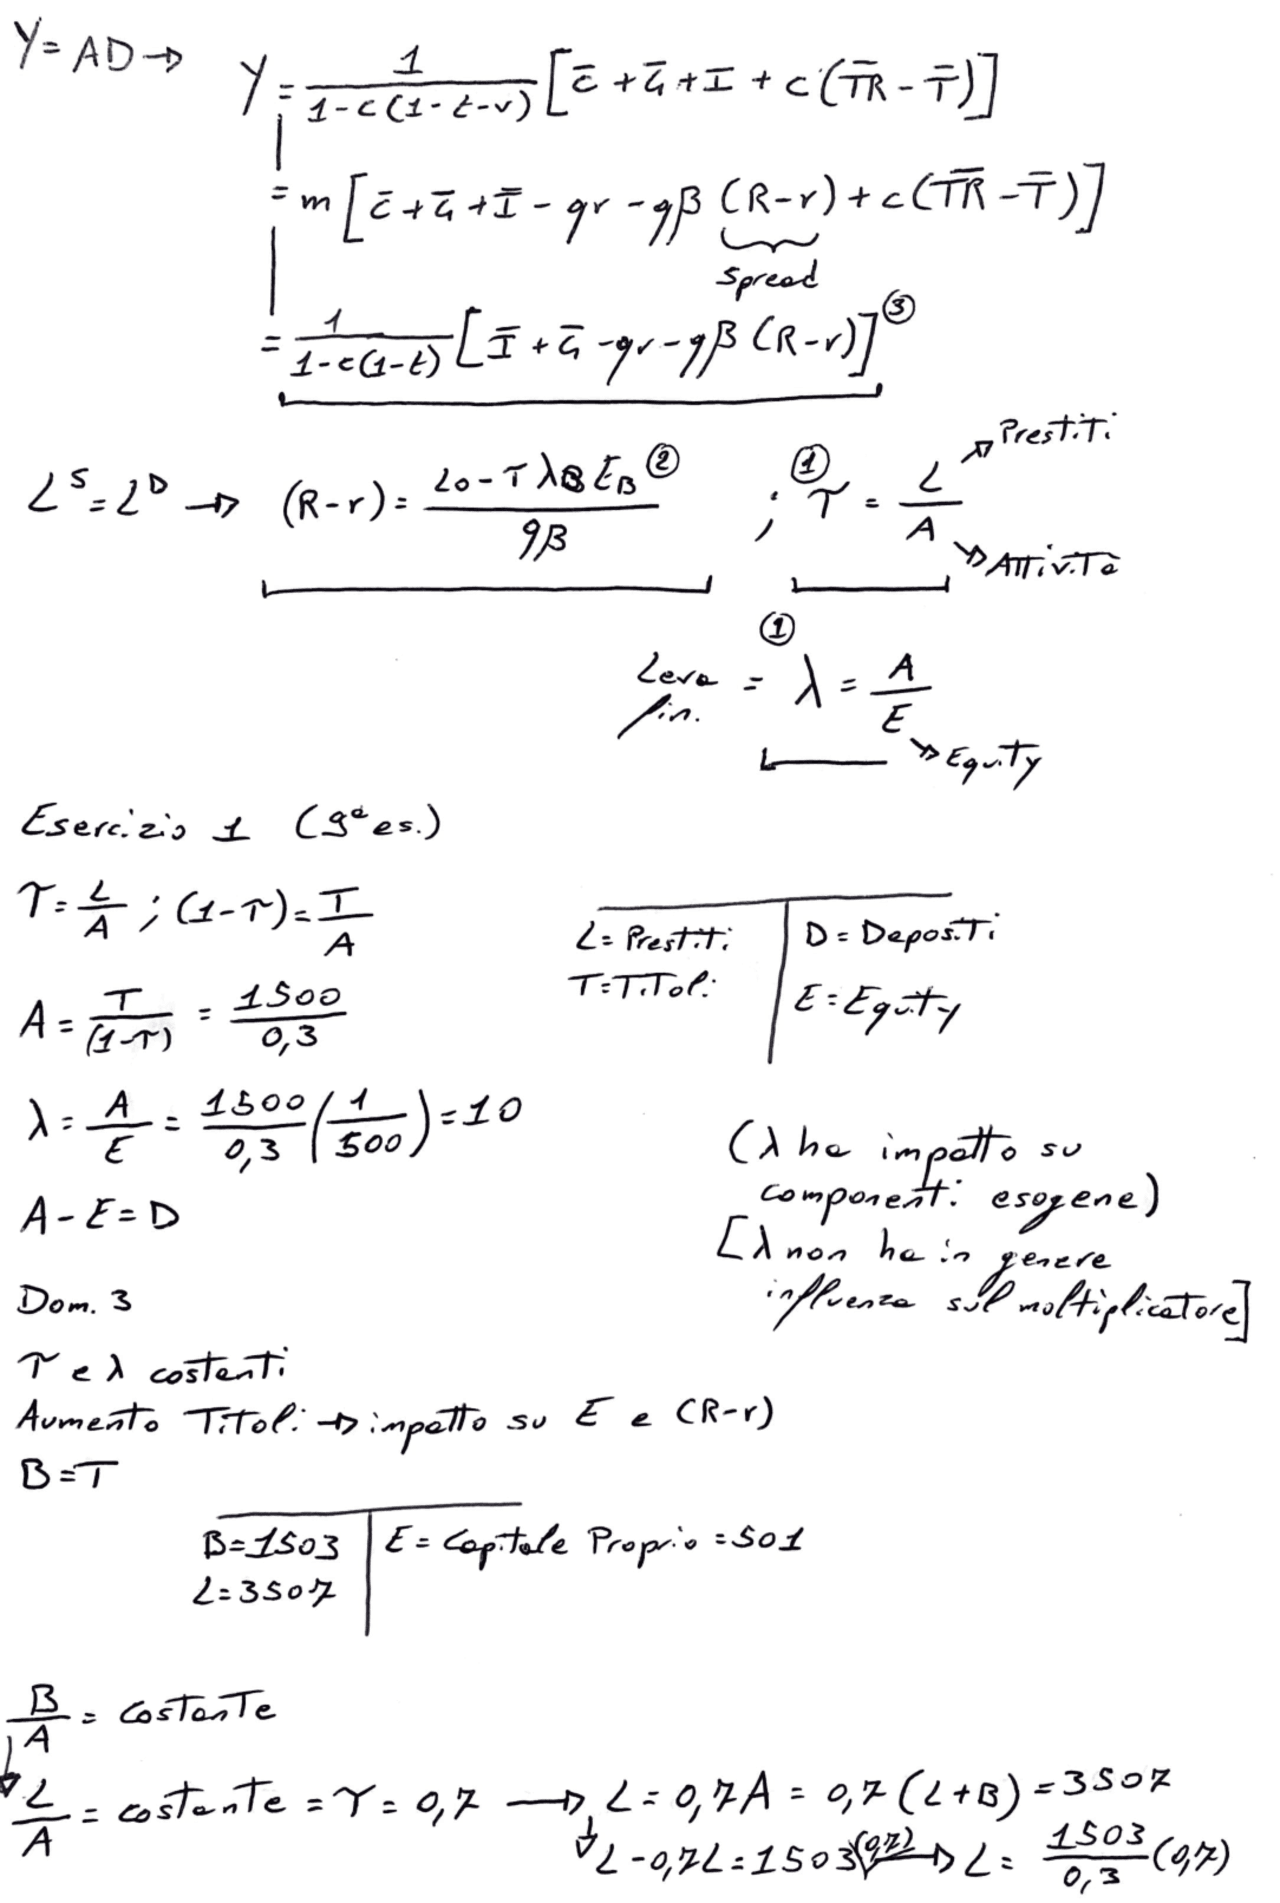 Y = AD → Y = 1/(1-c(1-t-v)) [c̄ + Ḡ + I + c(T̄R̄ - T̄)]
= m [c̄ + Ḡ + Ī - qr - qβ (R-r) + c(T̄R̄ - T̄)]
Spread
= 1/(1-c(1-t)) [Ī + Ḡ - qr - qβ (R-r)] ③
L^S = L^D → (R-r) = (L0 - τ λB E_B)/(qβ) ② ; ① τ = L/A → Prestiti
→ Attività
①
Leva fin. = λ = A/E
→ Equity
Esercizio 1 (9ª es.)
τ = L/A ; (1-τ) = T/A
L = Prestiti | D = Depositi
T = Titoli | E = Equity
A = T/(1-τ) = 1500/0,3
λ = A/E = 1500/0,3 (1/500) = 10
A - E = D
(λ ha impatto su
componenti esogene)
[λ non ha in genere
influenza sul moltiplicatore]
Dom. 3
τ e λ costanti
Aumento Titoli → impatto su E e (R-r)
B = T
B = 1503 | E = Capitale Proprio = 501
L = 3507
B/A = costante
L/A = costante = τ = 0,7 → L = 0,7A = 0,7 (L+B) = 3507
L - 0,7L = 1503(0,7) → L = 1503/0,3 (0,7)